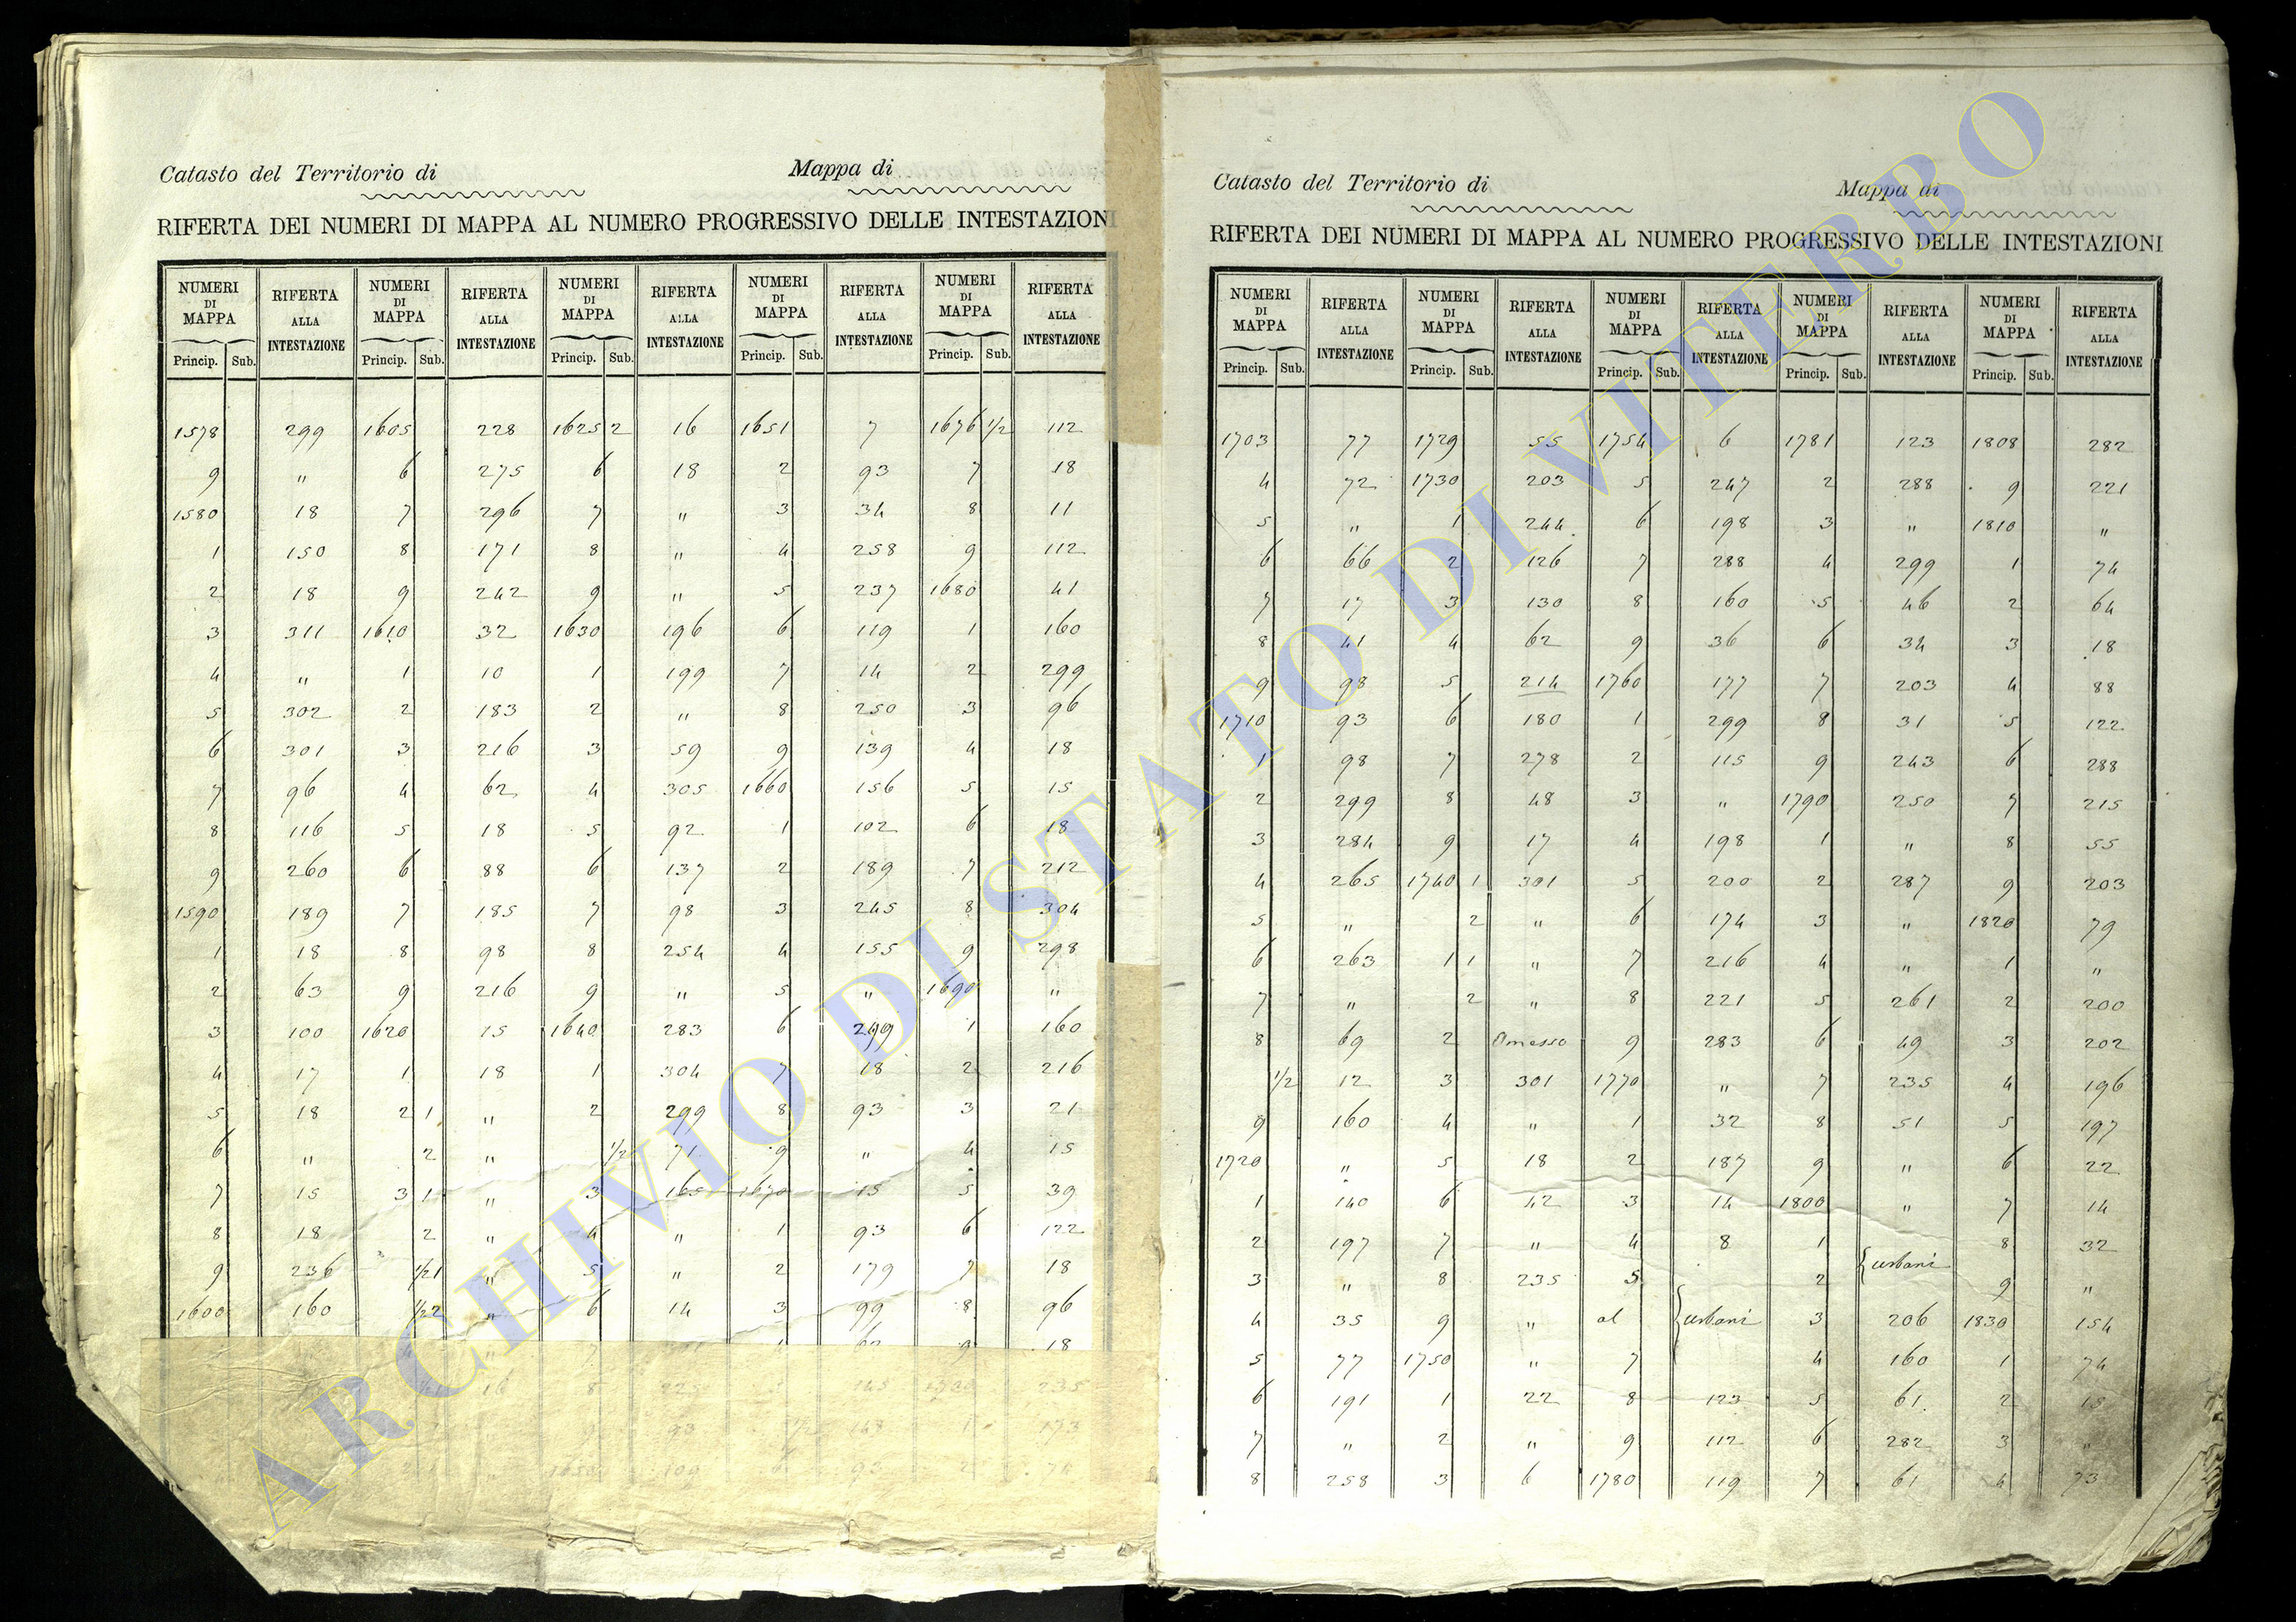 Catasto del Territorio di Mappa di
RIFERTA DEI NUMERI DI MAPPA AL NUMERO PROGRESSIVO DELLE INTESTAZIONI
NUMERI DI MAPPA RIFERTA ALLA INTESTAZIONE NUMERI DI MAPPA RIFERTA ALLA INTESTAZIONE NUMERI DI MAPPA RIFERTA ALLA INTESTAZIONE NUMERI DI MAPPA RIFERTA ALLA INTESTAZIONE NUMERI DI MAPPA RIFERTA ALLA INTESTAZIONE
Princip. Sub. Princip. Sub. Princip. Sub. Princip. Sub. Princip. Sub.
1578 299 1605 228 1625 2 16 1651 7 1676 1/2 112
9 " 6 275 6 18 2 93 7 18
1580 18 7 296 7 " 3 34 8 11
1 150 8 171 8 " 4 258 9 112
2 18 9 242 9 " 5 237 1680 41
3 311 1610 32 1630 196 6 119 1 160
4 " 1 10 1 199 7 14 2 299
5 302 2 183 2 " 8 250 3 96
6 301 3 216 3 59 9 139 4 18
7 96 4 62 4 305 1660 156 5 15
8 116 5 18 5 92 1 102 6 18
9 260 6 88 6 137 2 189 7 212
1590 189 7 185 7 98 3 245 8 304
1 18 8 98 8 254 4 155 9 298
2 63 9 216 9 " 5 " 1690 "
3 100 1620 15 1640 283 6 299 1 160
4 17 1 18 1 304 7 18 2 216
5 18 2 1 " 2 299 8 93 3 21
6 " 2 " 1/2 71 9 " 4 15
7 15 3 1 " 3 165 1670 15 5 39
8 18 2 " 4 " 1 93 6 122
9 236 1/2 1 " 5 " 2 179 7 18
1600 160 1/2 2 " 6 14 3 99 8 96
" 7 62 9 18
16 8 225 245 235
" 9 93 1/2 148 1 173
" 1650 109 93 2 74
Catasto del Territorio di Mappa di
RIFERTA DEI NUMERI DI MAPPA AL NUMERO PROGRESSIVO DELLE INTESTAZIONI
NUMERI DI MAPPA RIFERTA ALLA INTESTAZIONE NUMERI DI MAPPA RIFERTA ALLA INTESTAZIONE NUMERI DI MAPPA RIFERTA ALLA INTESTAZIONE NUMERI DI MAPPA RIFERTA ALLA INTESTAZIONE NUMERI DI MAPPA RIFERTA ALLA INTESTAZIONE
Princip. Sub. Princip. Sub. Princip. Sub. Princip. Sub. Princip. Sub.
1703 77 1729 55 1754 6 1781 123 1808 282
4 72 1730 203 5 247 2 288 9 221
5 " 1 244 6 198 3 " 1810 "
6 66 2 126 7 288 4 299 1 74
7 17 3 130 8 160 5 46 2 64
8 41 4 62 9 36 6 34 3 18
9 98 5 214 1760 177 7 203 4 88
1710 93 6 180 1 299 8 31 5 122
1 98 7 278 2 115 9 243 6 288
2 299 8 48 3 " 1790 250 7 215
3 284 9 17 4 198 1 " 8 55
4 265 1740 1 301 5 200 2 287 9 203
5 " 2 " 6 174 3 " 1820 79
6 263 1 1 " 7 216 4 " 1 "
7 " 2 " 8 221 5 261 2 200
8 69 2 Omesso 9 283 6 49 3 202
1/2 12 3 301 1770 " 7 235 4 196
9 160 4 " 1 32 8 51 5 197
1720 " 5 18 2 187 9 " 6 22
1 140 6 42 3 14 1800 " 7 14
2 197 7 " 4 8 1 { urbani 8 32
3 " 8 235 5 2 9 "
4 35 9 " al { urbani 3 206 1830 154
5 77 1750 " 7 4 160 1 74
6 191 1 22 8 123 5 61 2 18
7 " 2 " 9 112 6 282 3 "
8 258 3 6 1780 119 7 61 4 73
ARCHIVIO DI STATO DI VITERBO